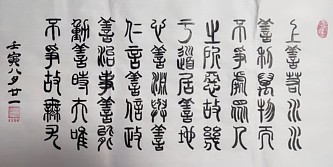 上善若水水
善利萬物而
不爭處眾人
之所惡故幾
于道居善地
心善淵與善
仁言善信政
善治事善能
動善時夫唯
不爭故無尤
壬寅八月廿一